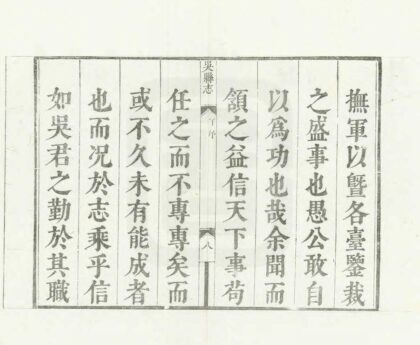 撫軍以暨各臺鑒裁
之盛事也愚公敢自
以為功也哉余聞而
頷之益信天下事苟
吳縣志
序
八
任之而不專專矣而
或不久未有能成者
也而况於志乘乎信
如吳君之勤於其職